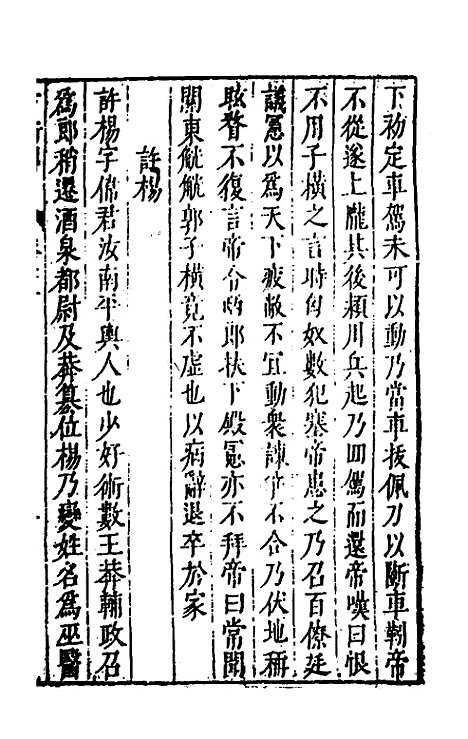 下初定車駕未可以動乃當車拔佩刀以斷車靷帝
不從遂上隴其後潁川兵起乃回駕而還帝嘆曰恨
不用子橫之言時匈奴數犯塞帝患之乃召百僚廷
議憲以爲天下疲敝不宜動衆諫爭不合乃伏地稱
眩瞀不復言帝令兩郎扶下殿憲亦不拜帝曰常聞
關東觥觥郭子橫竟不虛也以病辭退卒於家
許楊
許楊字偉君汝南平輿人也少好術數王莽輔政召
爲郎稍遷酒泉都尉及莽篡位楊乃變姓名爲巫醫